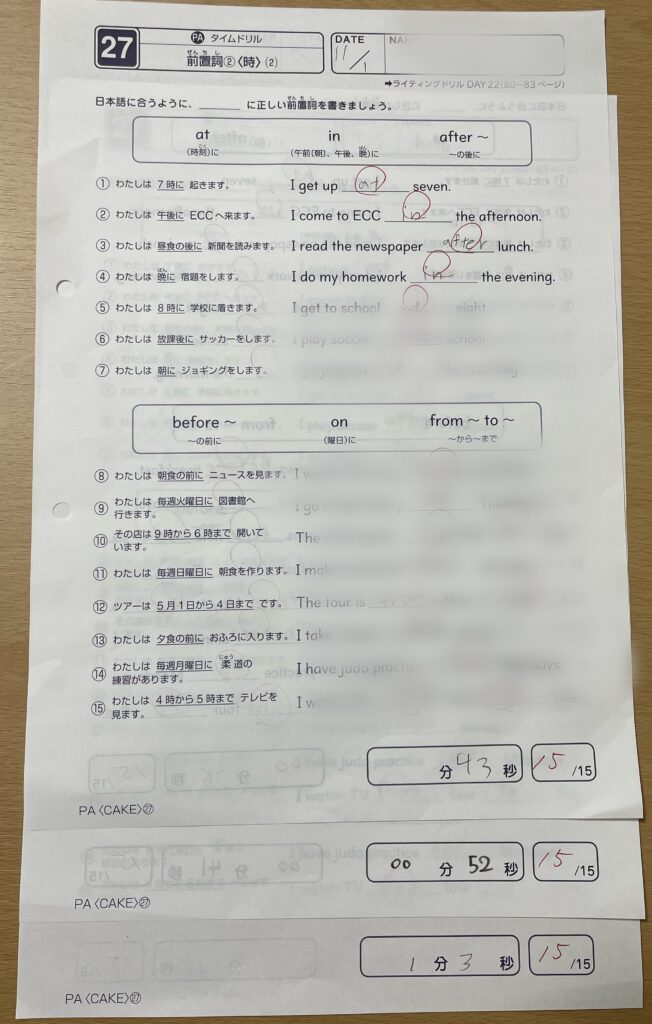 27
PA タイムドリル
前置詞②〈時〉(2)
DATE
11/1
NAM
➡ライティングドリル DAY 22(80~83ページ)
日本語に合うように、______ に正しい前置詞を書きましょう。
at in after ~
(時刻)に (午前〔朝〕、午後、晩)に ~の後に
① わたしは 7時に 起きます。 I get up at seven.
② わたしは 午後に ECCへ来ます。 I come to ECC in the afternoon.
③ わたしは 昼食の後に 新聞を読みます。 I read the newspaper after lunch.
④ わたしは 晩に 宿題をします。 I do my homework in the evening.
⑤ わたしは 8時に 学校に着きます。 I get to school at eight.
⑥ わたしは 放課後に サッカーをします。 I play soccer school.
⑦ わたしは 朝に ジョギングをします。
before ~ on from ~ to ~
~の前に (曜日)に ~から~まで
⑧ わたしは 朝食の前に ニュースを見ます。 I
⑨ わたしは 毎週火曜日に 図書館へ
行きます。 I go
⑩ その店は 9時から6時まで 開いて
います。 The
⑪ わたしは 毎週日曜日に 朝食を作ります。 I
⑫ ツアーは 5月1日から4日まで です。 The tour is from
⑬ わたしは 夕食の前に おふろに入ります。 I take
⑭ わたしは 毎週月曜日に 柔道の
練習があります。 I have judo practice
⑮ わたしは 4時から5時まで テレビを
見ます。 I
分 43 秒 15 /15
PA〈CAKE〉㉗
00 分 52 秒 15 /15
PA〈CAKE〉㉗
1 分 3 秒 15 /15
PA〈CAKE〉㉗